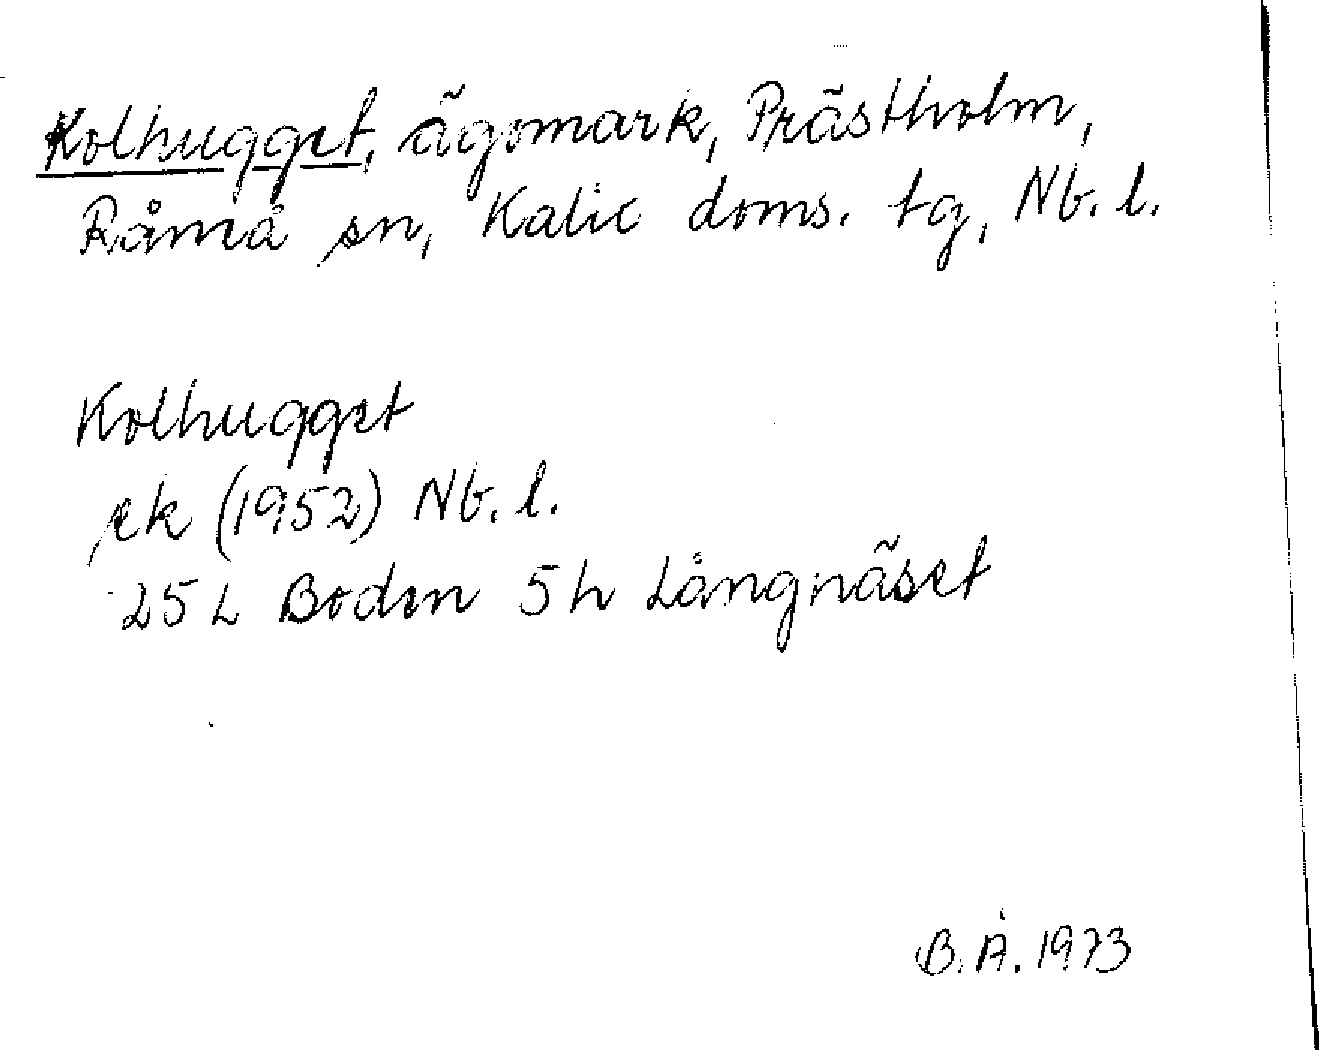 Kolhugget, ägomark, Prästholm,
Råneå sn, Kalix doms. tg, Nb. l.
Kolhugget
ek (1952) Nb. l.
25 L Boden 5 h Långnäset
B. Å. 1973